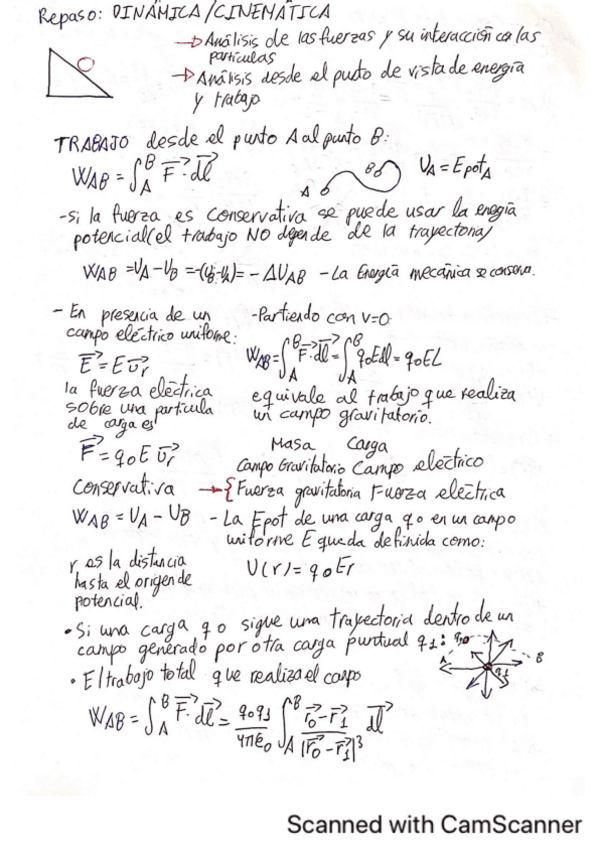 Repaso: DINÁMICA/CINEMÁTICA
→ Análisis de las fuerzas y su interacción con las
partículas
→ Análisis desde el punto de vista de energía
y trabajo
TRABAJO desde el punto A al punto B:
W_AB = ∫_A^B F⃗·dl⃗
A B U_A = Epot_A
-si la fuerza es conservativa se puede usar la energía
potencial (el trabajo NO depende de la trayectoria)
W_AB = U_A - U_B = -(U_B - U_A) = -ΔU_AB - La Energía mecánica se conserva.
- En presencia de un
campo eléctrico uniforme:
E⃗ = E u⃗_r
la fuerza eléctrica
sobre una partícula
de carga es
F⃗ = q0 E u⃗_r
Conservativa
W_AB = U_A - U_B
r es la distancia
hasta el origen de
potencial.
-Partiendo con v=0
W_AB = ∫_A^B F⃗·dl⃗ = ∫_A^B q0Edl = q0EL
equivale al trabajo que realiza
un campo gravitatorio.
Masa Carga
Campo Gravitatorio Campo eléctrico
→ { Fuerza gravitatoria Fuerza eléctrica
- La Epot de una carga q0 en un campo
uniforme E queda definida como:
U(r) = q0Er
• Si una carga q0 sigue una trayectoria dentro de un
campo generado por otra carga puntual q1:
q0 A B q1
• El trabajo total que realiza el campo
W_AB = ∫_A^B F⃗·dl⃗ = q0q1/4πε0 ∫_A^B (r⃗0 - r⃗1)/|r⃗0 - r⃗1|³ dl⃗
Scanned with CamScanner